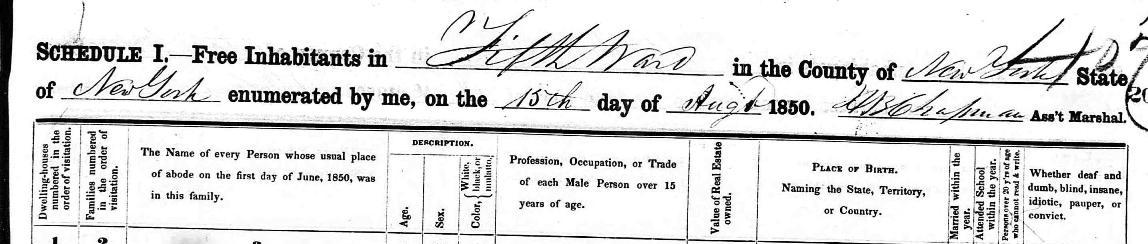 SCHEDULE I.—Free Inhabitants in Fifth Ward in the County of New York State
of New York enumerated by me, on the 15th day of Augt 1850. Chapman Ass't Marshal.
Dwelling-houses numbered in the order of visitation.
Families numbered in the order of visitation.
The Name of every Person whose usual place
of abode on the first day of June, 1850, was
in this family.
DESCRIPTION.
Age.
Sex.
Color, { White, black, or mulatto.
Profession, Occupation, or Trade
of each Male Person over 15
years of age.
Value of Real Estate owned.
PLACE OF BIRTH.
Naming the State, Territory,
or Country.
Married within the year.
Attended School within the year.
Persons over 20 y'rs of age who cannot read & write.
Whether deaf and
dumb, blind, insane,
idiotic, pauper, or
convict.